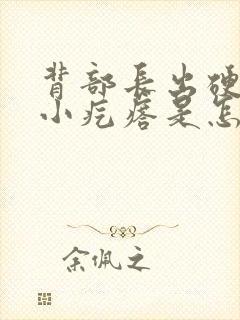 背部长出硬
小疙瘩是怎
余佩之